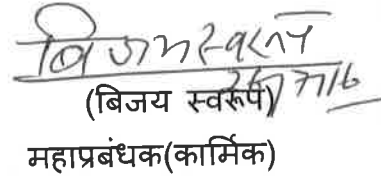 बिजयस्वरूप
(बिजय स्वरूप)
महाप्रबंधक(कार्मिक)